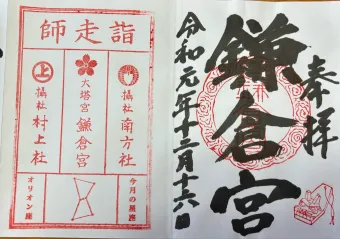 奉拝
鎌倉宮
令和元年十二月十六日
師走詣
摂社 南方社
大塔宮 鎌倉宮
上
摂社 村上社
今月の星座
オリオン座